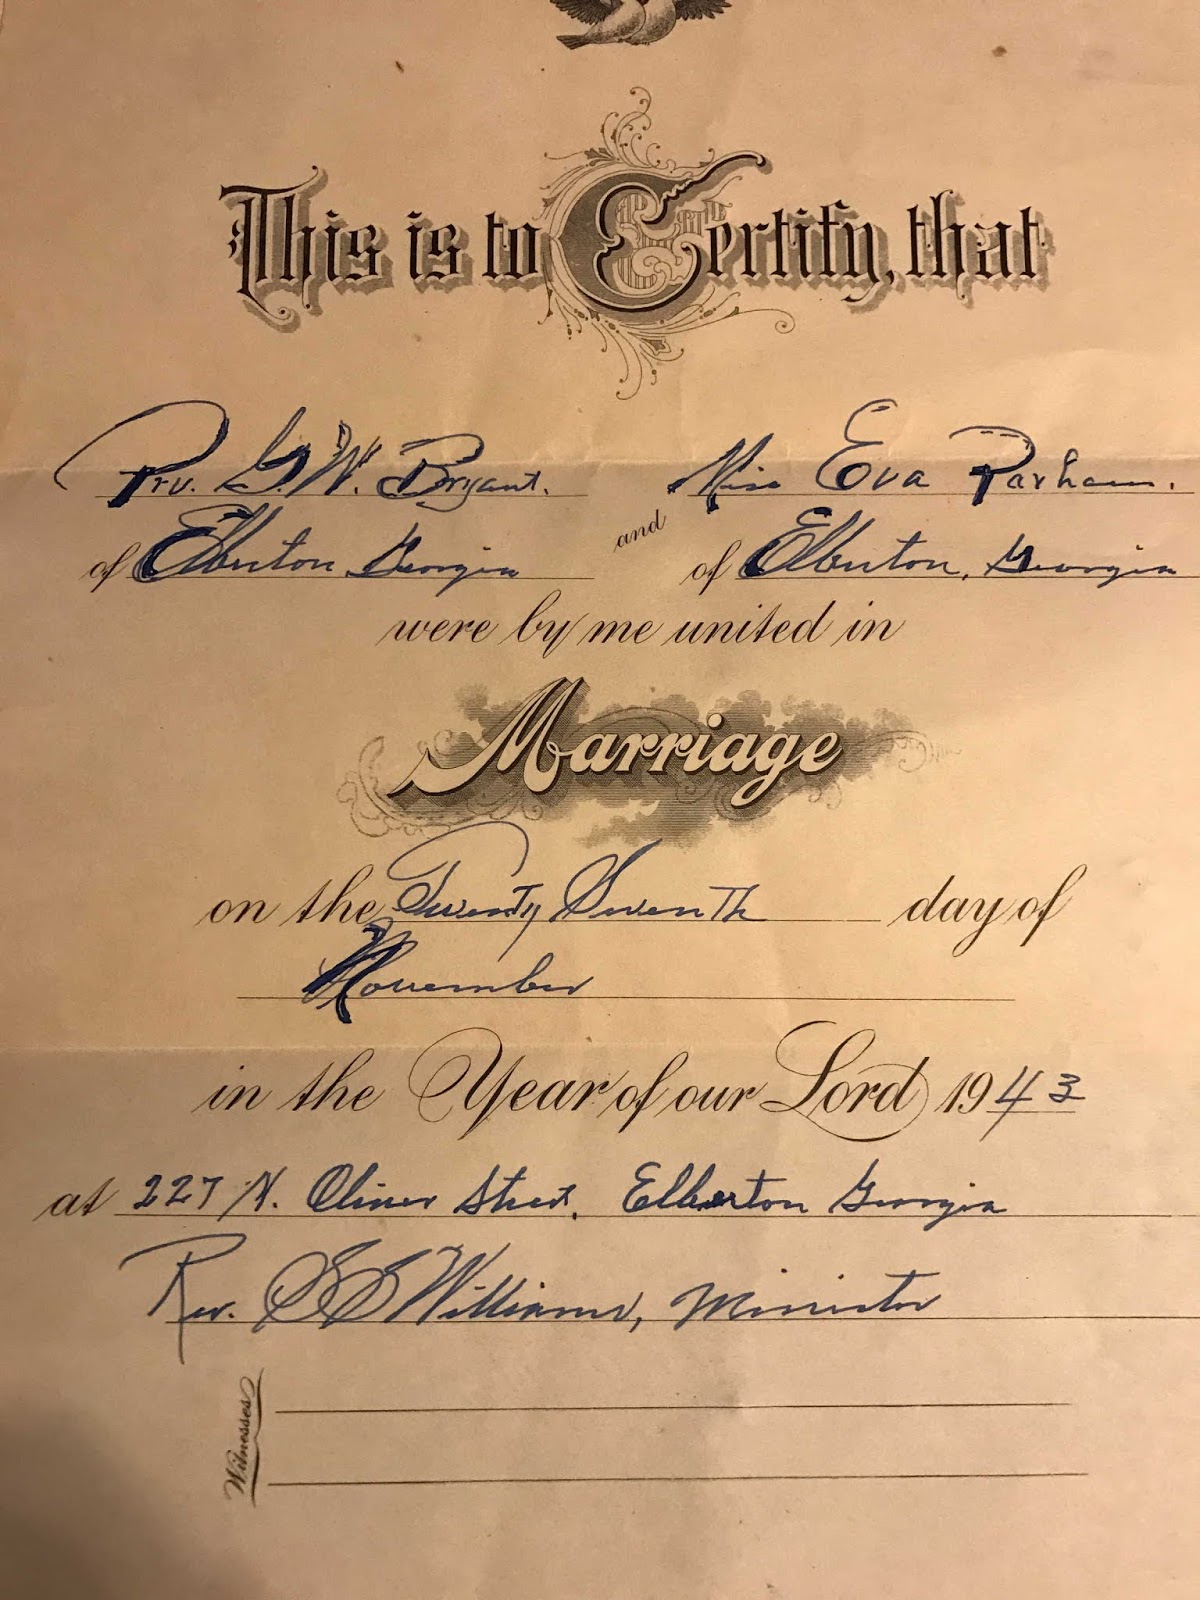 This is to Certify, that
Prv. G. W. Bryant. and Miss Eva Parham.
of Elberton, Georgia of Elberton, Georgia
were by me united in
Marriage
on the Twenty Seventh day of
November
in the Year of our Lord 1943
at 227 N. Oliver Street, Elberton Georgia
Rev. S S Williams, Minister
Witnesses